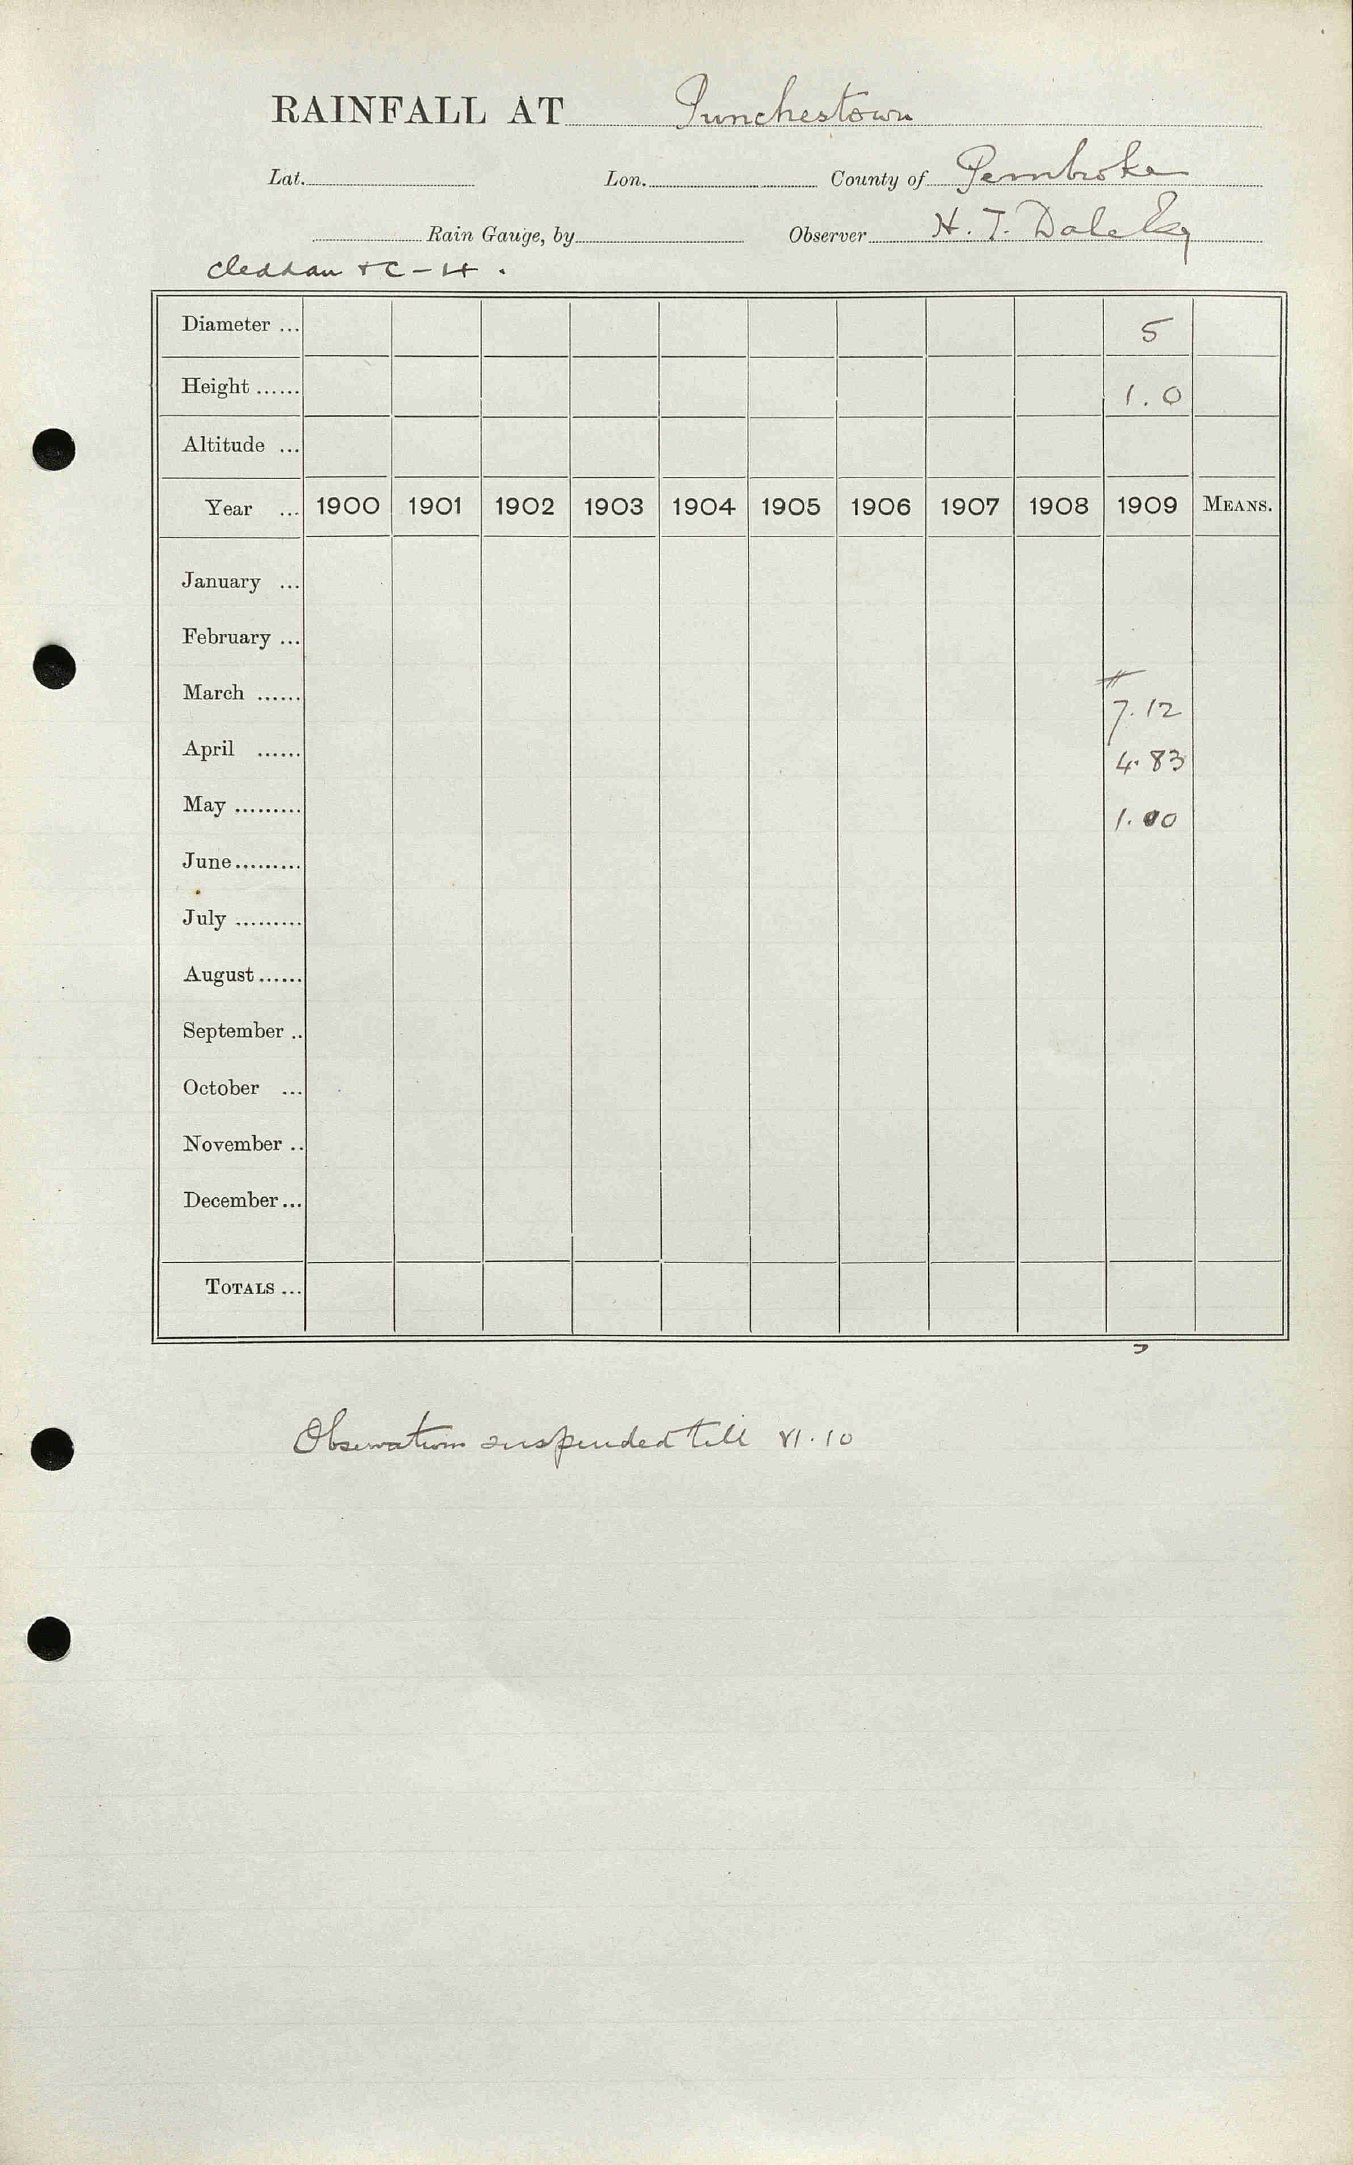 RAINFALL AT Punchestown
Lat. Lon. County of Pembroke
Rain Gauge, by Observer H. T. Daleley
Cleddau + C - H .
Diameter ... 5
Height ...... 1.0
Altitude ...
Year ... 1900 1901 1902 1903 1904 1905 1906 1907 1908 1909 MEANS.
January ...
February ...
March ...... 7.12
April ...... 4.83
May ......... 1.00
June.........
July .........
August ......
September ..
October ...
November ..
December ...
TOTALS ...
Observations suspended till VI.10